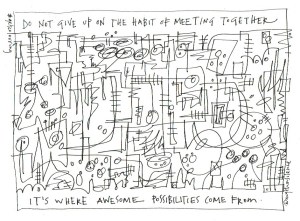 DO NOT GIVE UP ON THE HABIT OF MEETING TOGETHER
IT'S WHERE AWESOME POSSIBILITIES COME FROM.